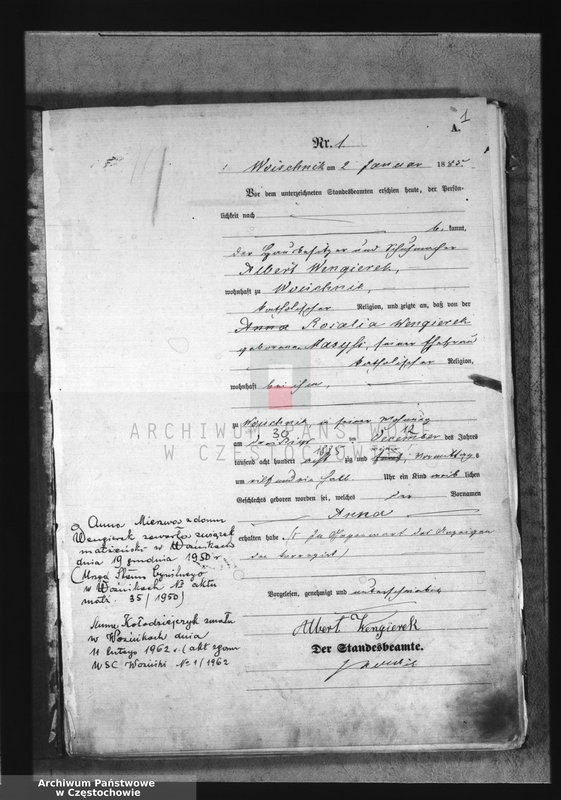 1
A.
Nr. 1
Woischnik am 2 Januar 1885
Vor dem unterzeichneten Standesbeamten erschien heute, der Persön-
lichkeit nach
be kannt,
der Hausbesitzer und Schuhmacher
Albert Wengierek,
wohnhaft zu Woischnik,
katholischer Religion, und zeigte an, daß von der
Anna Rosalia Wengierek
geborene seiner Ehefrau
katholischer Religion,
wohnhaft bei ihm,
zu Woischnik in seiner Wohnung
am dreißigsten 30 December 12 des Jahres
tausend acht hundert acht zig und Vormittags
um elf und ein halb Uhr ein Kind weib lichen
Geschlechts geboren worden sei, welches den Vornamen
Anna
erhalten habe.
Vorgelesen, genehmigt und unterschrieben
Albert Wengierek
Der Standesbeamte.
Anna Mierzwa z domu
Wengierek zawarła związek
małżeński w Woźnikach
dnia 19 grudnia 1950 r.
(Urząd Stanu Cywilnego
w Woźnikach Nr aktu
małż. 35/1950)
Kołodziejczyk zmarła
w Woźnikach dnia
11 lutego 1962 r. (akt zgonu
USC Woźniki Nr 1/1962
ARCHIWUM PAŃSTWOWE
W CZĘSTOCHOWIE
Archiwum Państwowe
w Częstochowie